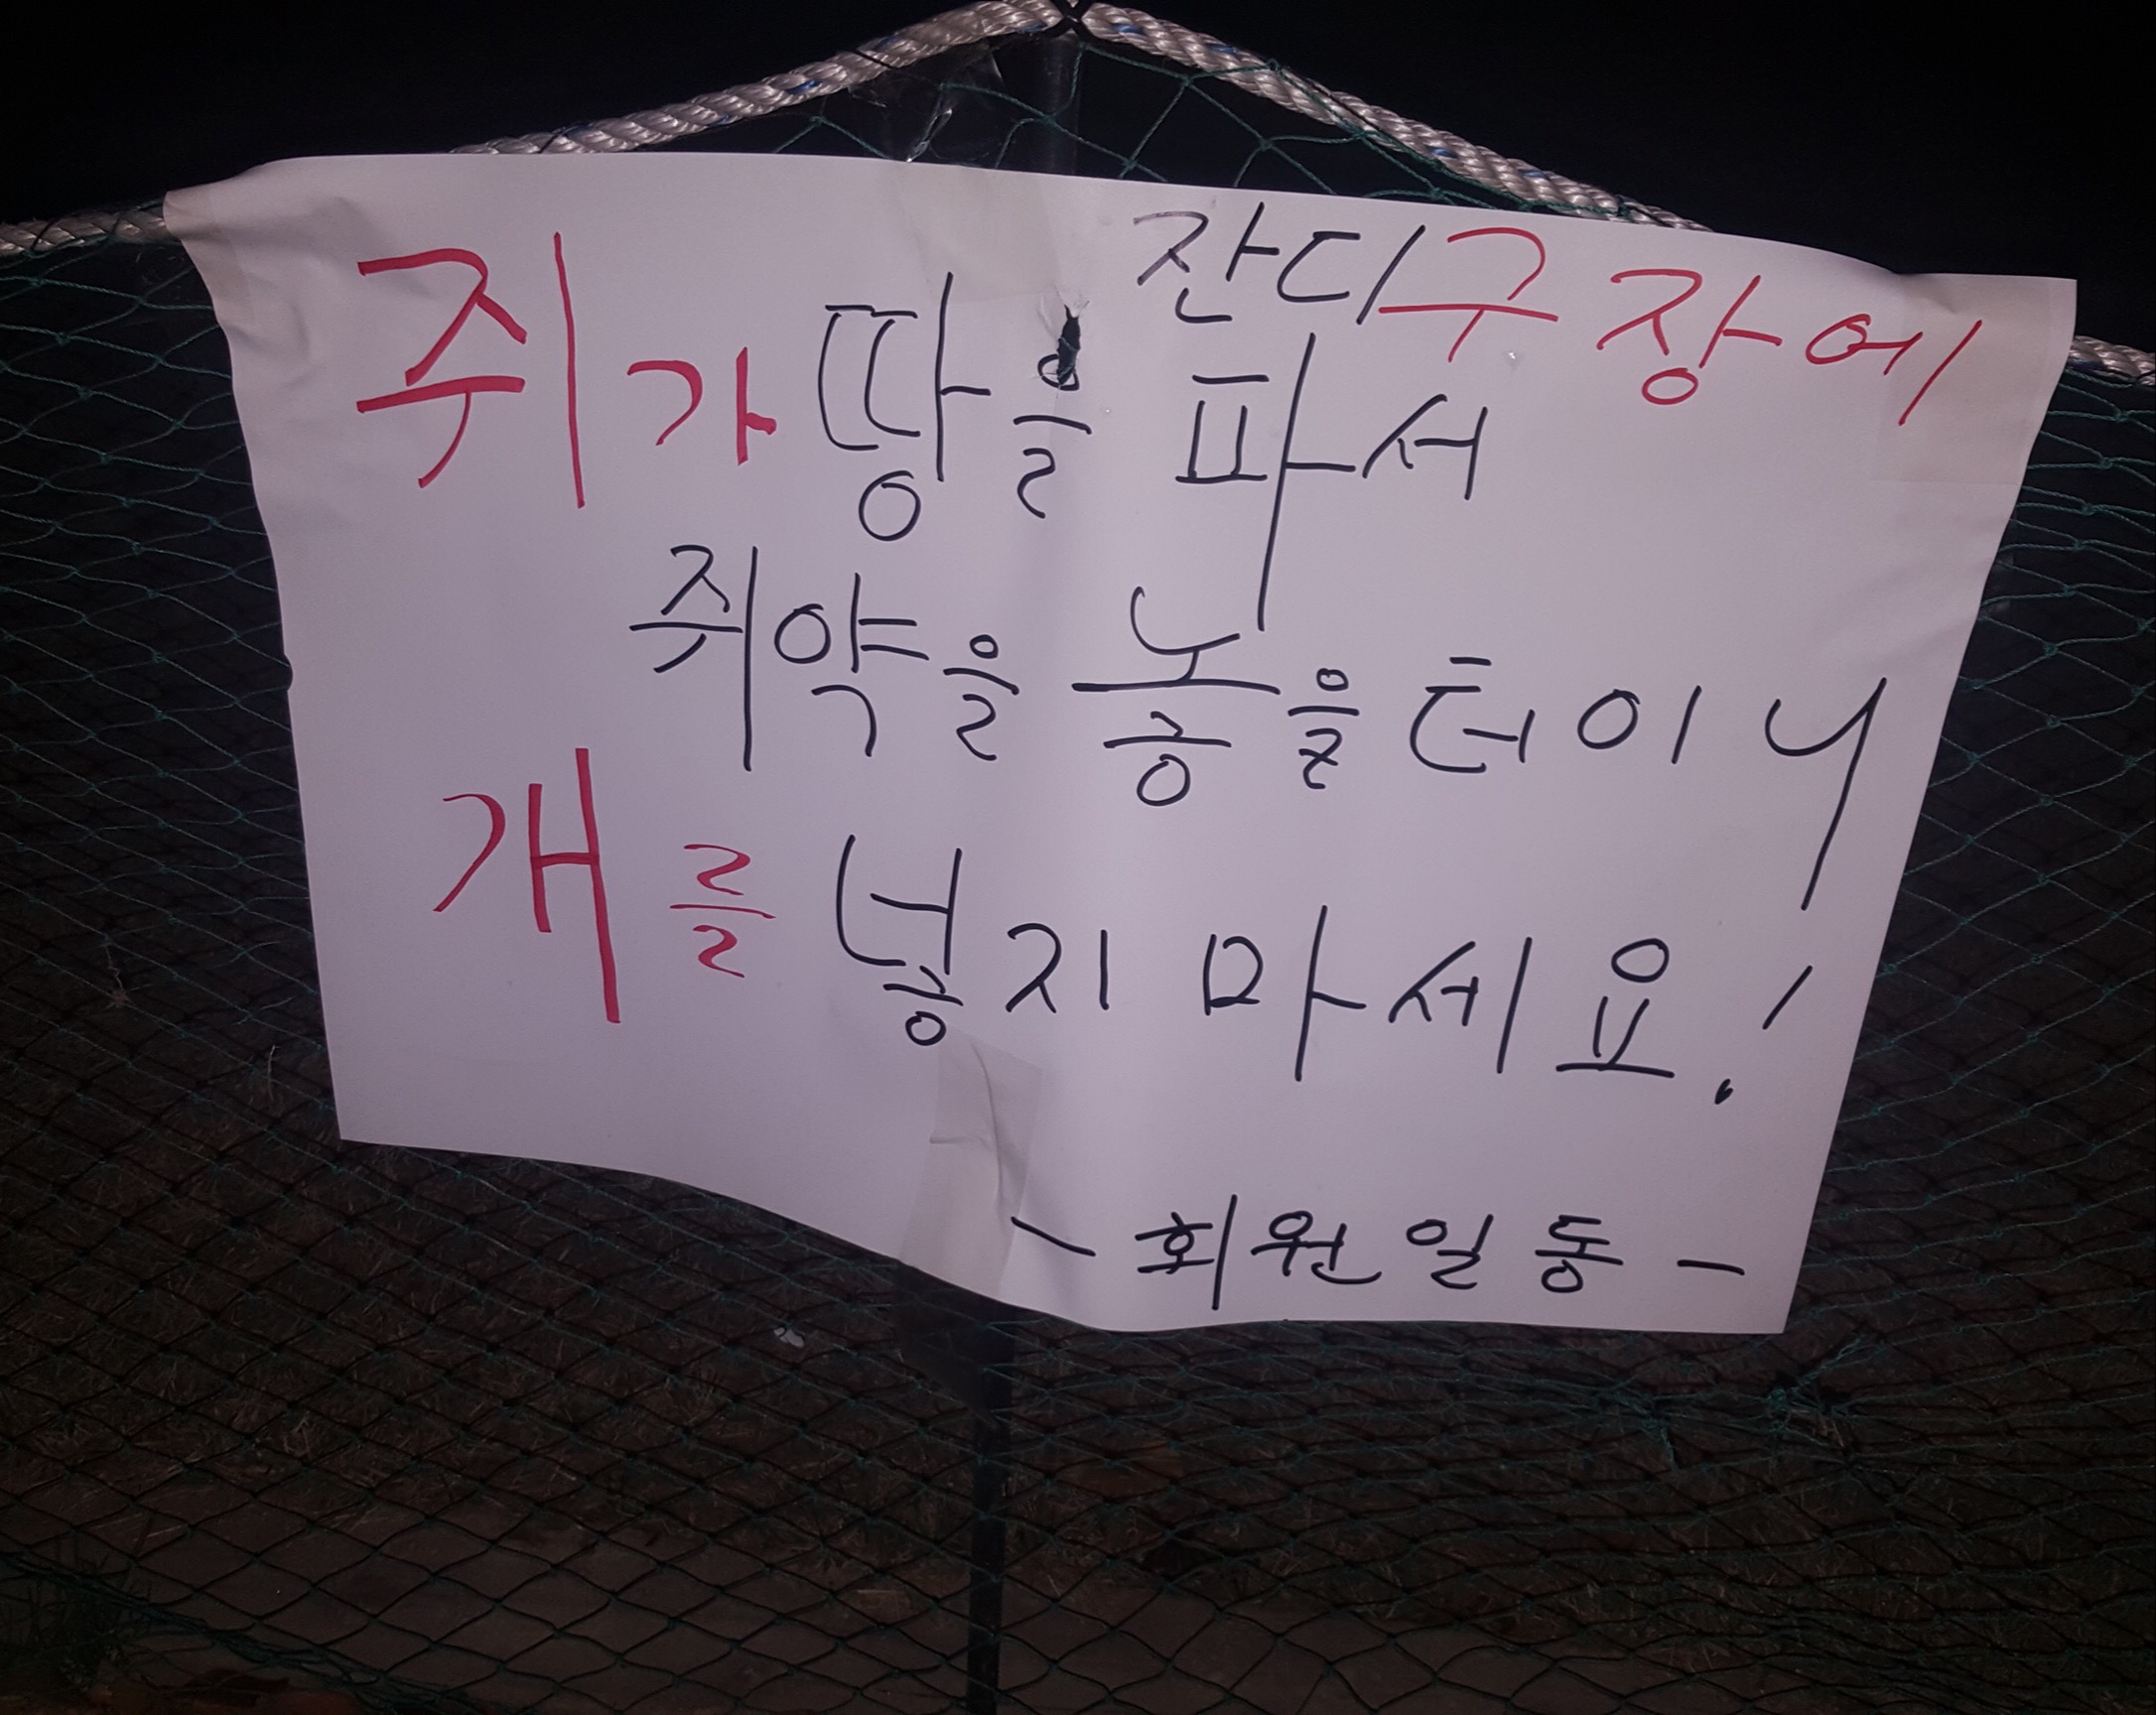 잔디구장에
쥐가 땅을 파서
쥐약을 놓을 터이니
개를 넣지 마세요!
- 회원일동 -